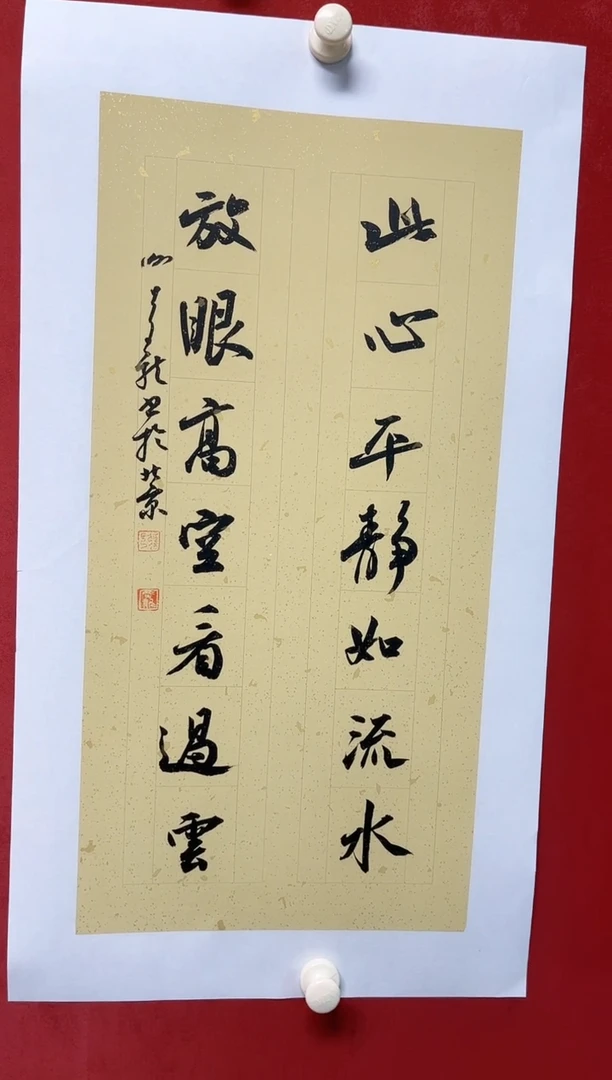 此心平静如流水
放眼高空看過雲
書於北京